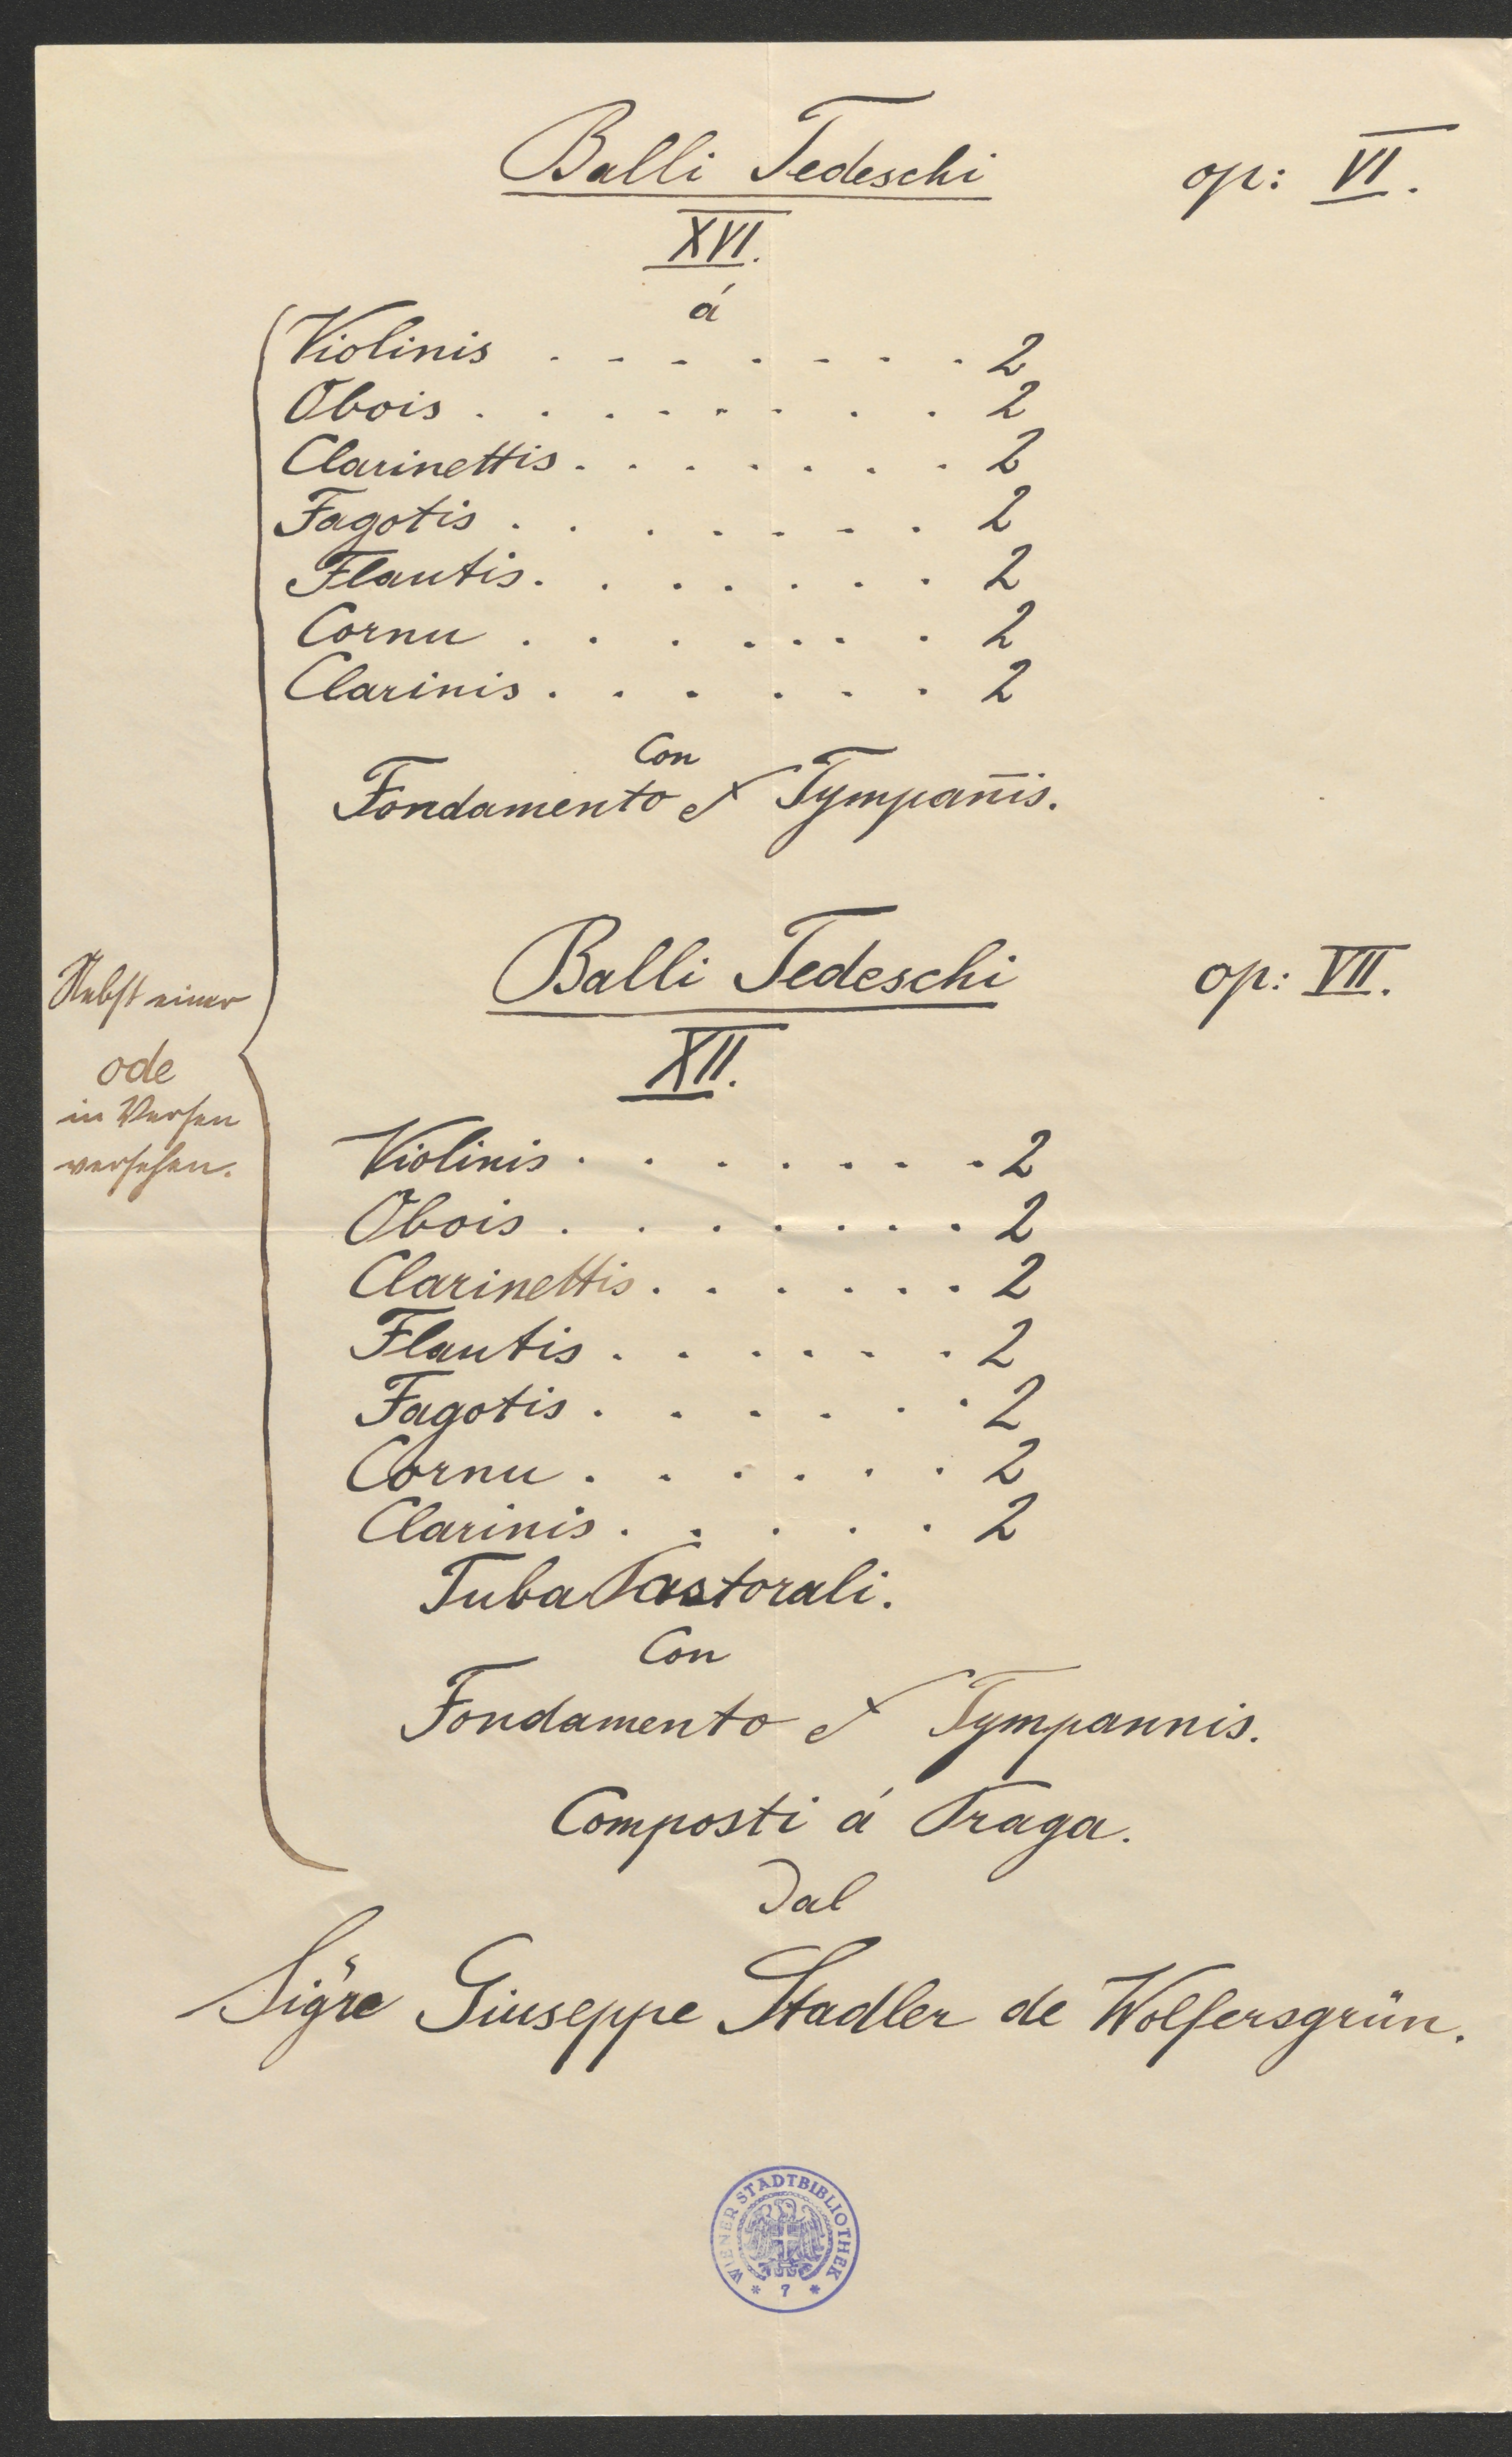 Balli Tedeschi op: VI.
XVI.
á
Violinis . . . . . . . 2
Obois . . . . . . . . 2
Clarinettis . . . . . . . 2
Fagotis . . . . . . . 2
Flautis . . . . . . . 2
Cornu . . . . . . . 2
Clarinis . . . . . . 2
Con
Fondamento et Tympan̄is.
Balli Tedeschi op: VII.
XII.
Violinis . . . . . . . 2
Obois . . . . . . . 2
Clarinettis . . . . . . 2
Flautis . . . . . . 2
Fagotis . . . . . . 2
Cornu . . . . . . 2
Clarinis . . . . . 2
Tuba Pastorali.
Con
Fondamento et Tympannis.
Composti á Praga.
Dal
Sigre Giuseppe Stadler de Wolfersgrün.
Nebst einer
ode
in Versen
versehen.
WIENER STADTBIBLIOTHEK
* 7 *